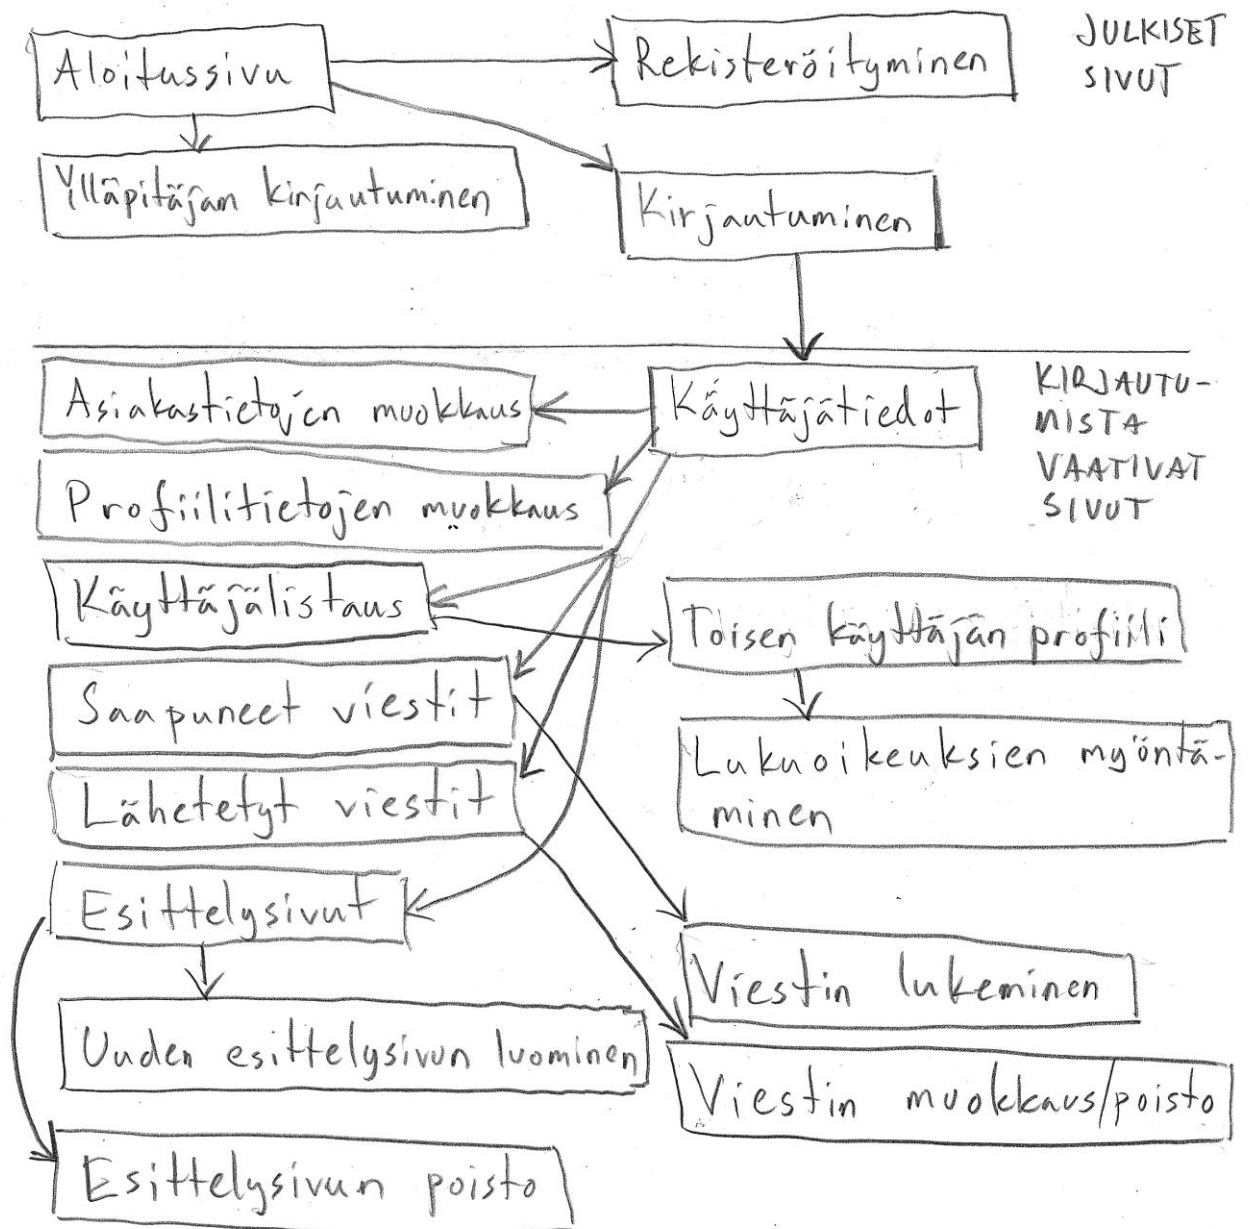 Aloitussivu
Rekisteröityminen
JULKISET
SIVUT
Ylläpitäjän kirjautuminen
Kirjautuminen
Asiakastietojen muokkaus
Käyttäjätiedot
KIRJAUTU-
MISTA
VAATIVAT
SIVUT
Profiilitietojen muokkaus
Käyttäjälistaus
Toisen käyttäjän profiili
Saapuneet viestit
Lukuoikeuksien myöntä-
minen
Lähetetyt viestit
Esittelysivut
Viestin lukeminen
Uuden esittelysivun luominen
Viestin muokkaus/poisto
Esittelysivun poisto